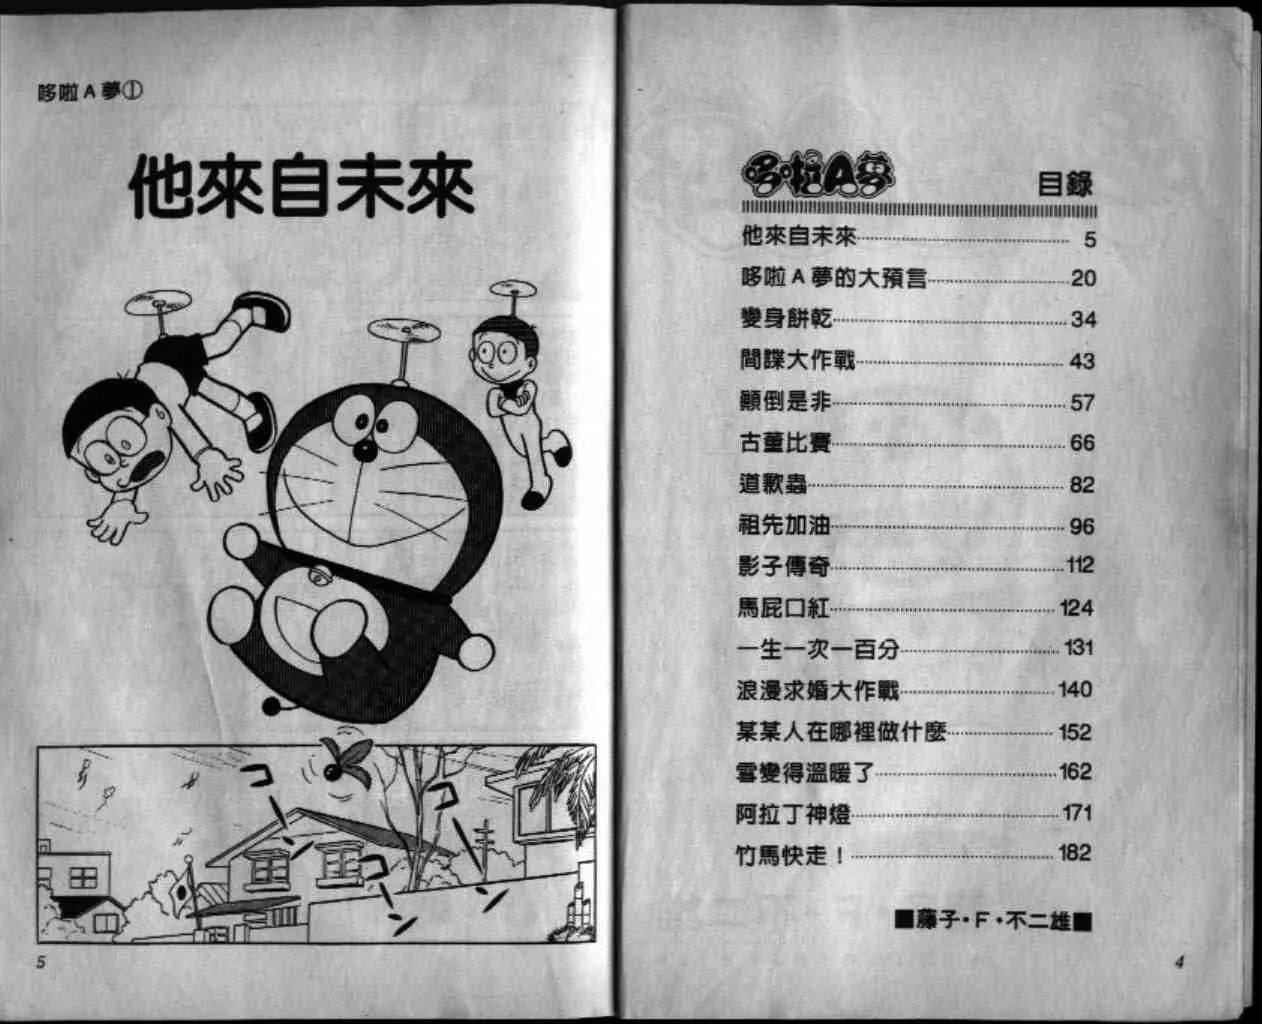 哆啦A夢
目錄
他來自未來 5
哆啦A夢的大預言 20
變身餅乾 34
間諜大作戰 43
顛倒是非 57
古董比賽 66
道歉蟲 82
祖先加油 96
影子傳奇 112
馬屁口紅 124
一生一次一百分 131
浪漫求婚大作戰 140
某某人在哪裡做什麼 152
雪變得溫暖了 162
阿拉丁神燈 171
竹馬快走！ 182
■藤子・F・不二雄■
4
哆啦A夢①
他來自未來
コーン
コーン
コーン
5